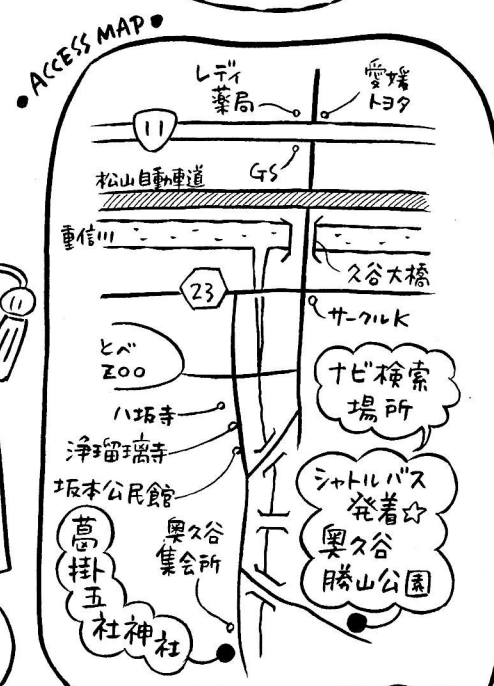 ACCESS MAP
レディ
薬局
愛媛
トヨタ
11
GS
松山自動車道
重信川
久谷大橋
23
サークルK
とべ
ZOO
ナビ検索
場所
八坂寺
浄瑠璃寺
坂本公民館
シャトルバス
発着☆
奥久谷
勝山公園
奥久谷
集会所
葛
掛
五
社神社